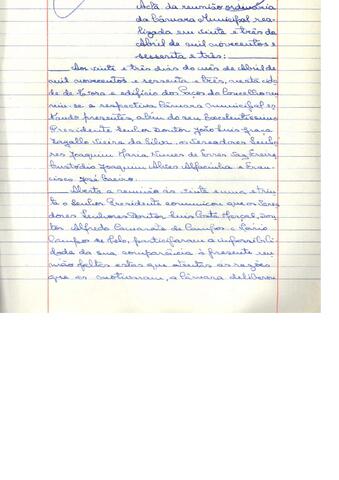 Acta da reunião ordinária
da Câmara Municipal rea-
lizada em vinte e três de
Abril de mil novecentos e
sessenta e três:
Aos vinte e três dias do mês de Abril de
mil novecentos e sessenta e três, nesta cida-
de de Évora e edifício dos Paços do Concelho reu-
niu-se a respectiva Câmara Municipal es-
tando presentes, além do seu Excelentíssimo
Presidente Senhor Doutor João Luís
Vieira da Silva, os Vereadores Senho-
res Joaquim Maria Nunes de Torres Vaz Freire
Custódio Joaquim Alfacinha e Fran-
cisco José
Aberta a reunião às vinte e uma e trin-
ta o Senhor Presidente comunicou que os Verea-
dores Senhores Doutor Luís Costa Dou-
tor Alfredo Camarate de Campos e Mário
Campos de Melo, participaram a impossibili-
dade da sua comparência à presente reu-
nião faltas estas que atentas as razões
que as motivaram, a Câmara deliberou